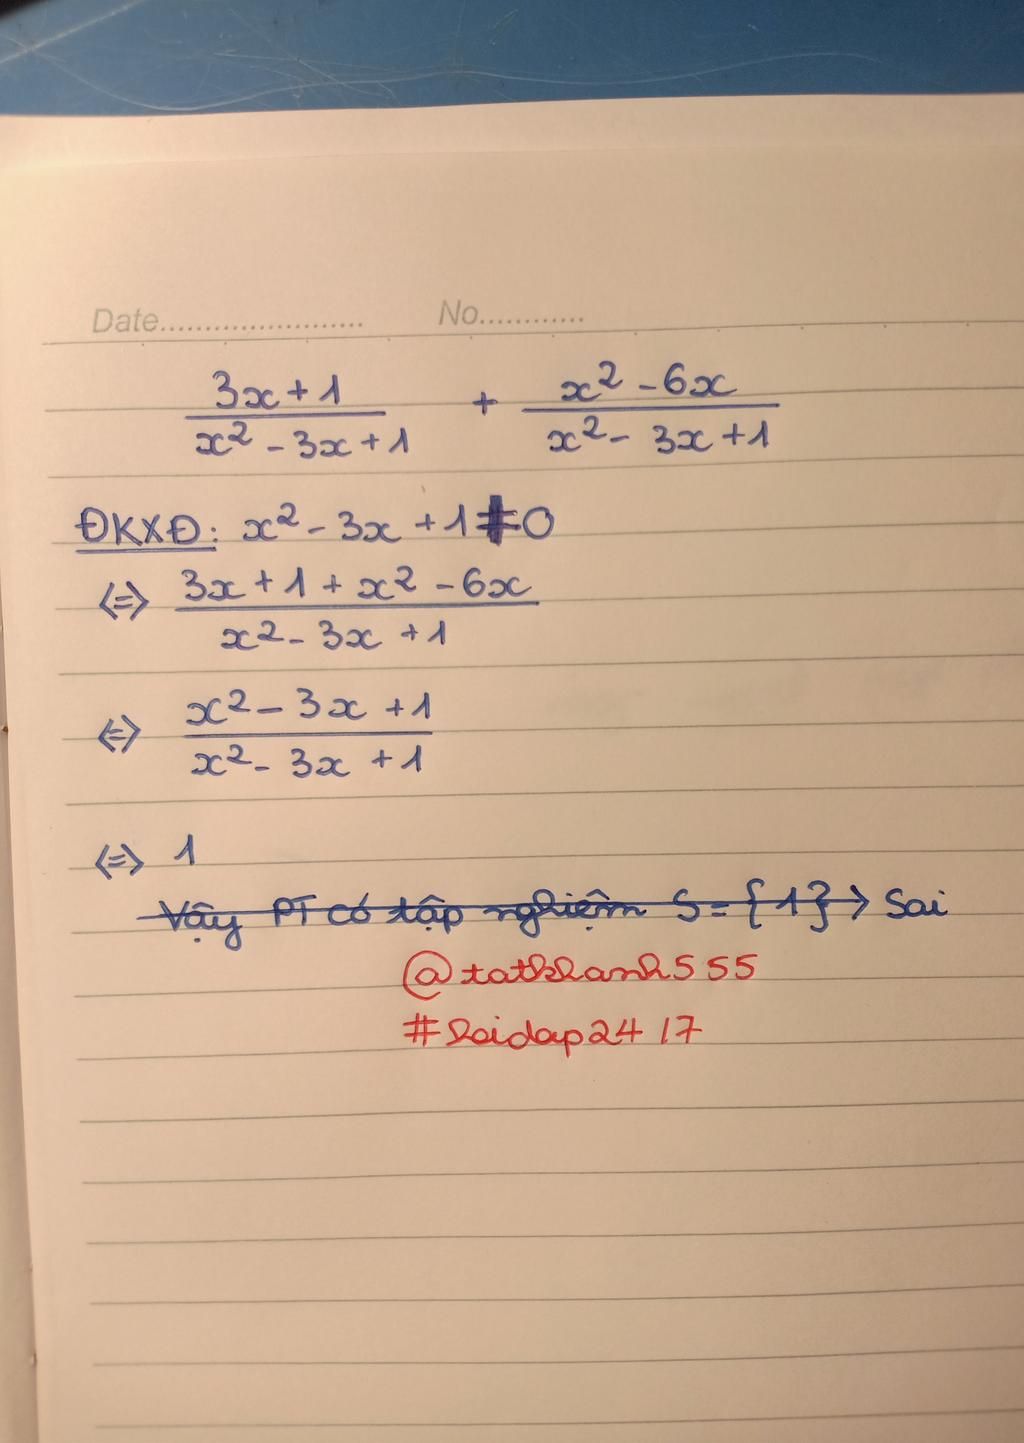 Date...................... No............
3x+1 / x² - 3x + 1 + x² - 6x / x² - 3x + 1
ĐKXĐ: x² - 3x + 1 ≠ 0
<=> 3x + 1 + x² - 6x / x² - 3x + 1
<=> x² - 3x + 1 / x² - 3x + 1
<=> 1
Vậy PT có tập nghiệm S = {1} → Sai
@tatkhanh555
#hoidap2417